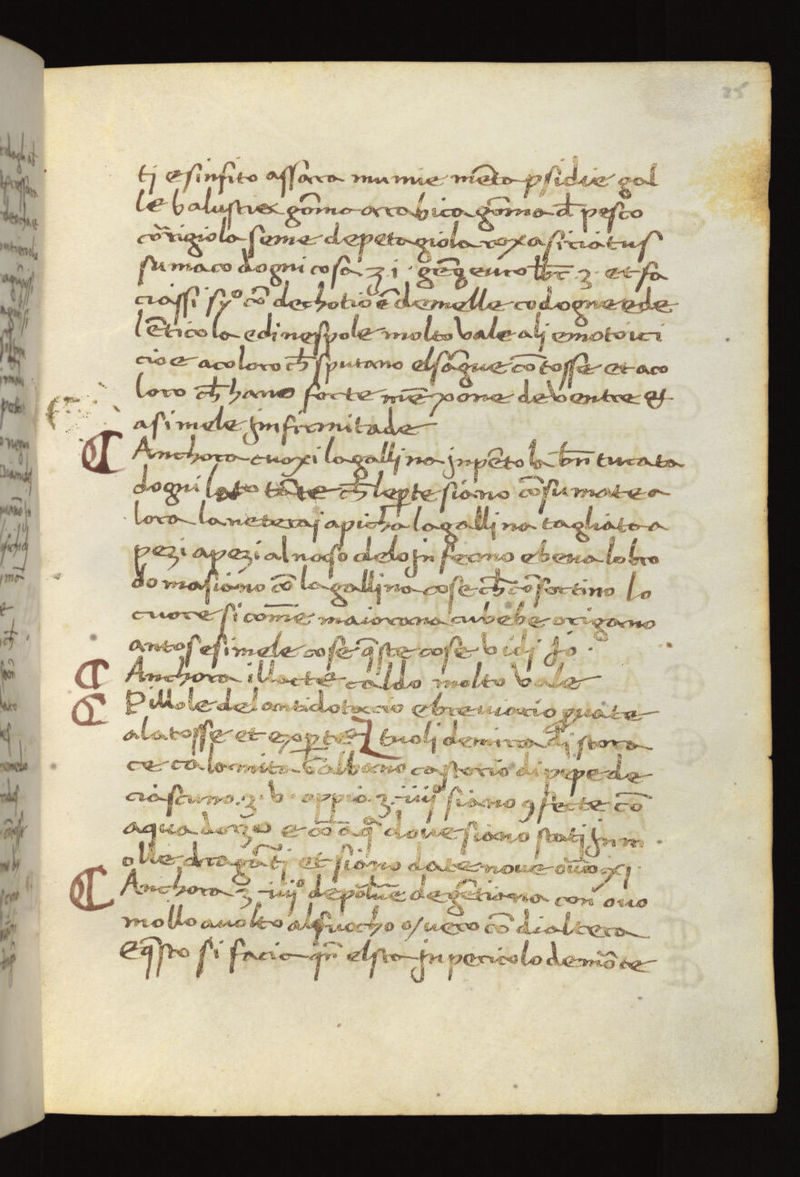 25
tj esinfito assara mumie mēta psidie gal
le balustie gōma arabica gōma đ pesco
cōrigiola seme depetagiola roxa siriatus
sumaco dogni cosa ʒ i · et fa
ciassi sy° cō dechotiōe demelle codogne ede
lēticola edinespole molto vale alj emotoici
cio e acoloro cħ sputano elsāgue cō tosse et aco
loro cħ hano forte mēxone deventre et
asimele jnfirmitade
Anchora cuoxi lagallina jnpētola bn̄ turata
dogni lato tāte cħ leperte siano cōsumate a
lora laneterai apichā lagallina tagliata a
pezi apezi alnaso delo jnfermo e beva lobro
do ma siano cō lagallina cose cħ cōfortino lo
cuore si come maiorana cubebe origano
antos esimele cose q̄ste cose vidj Jo ·
Anchora illacte caldo molto vale
Pillole del antidotario ebreviario
alatosse et experte Z tuoli demirra di stora
ce calamita castorio di pepe de
ciascuno · ʒ · v · oppio ʒ · iiij° siano 9fecte cō
aqua dorzo e cō aq̄ dove siano statj jnm
olle dragātj et siano date nove overo xj ·
Anchora ʒ · iiij° depolvē degētiana con ovo
mollo avolto alfuocho o/vero cō dialtera
Eq̄sto si facia qn̄ elsta jnpericolo demōte